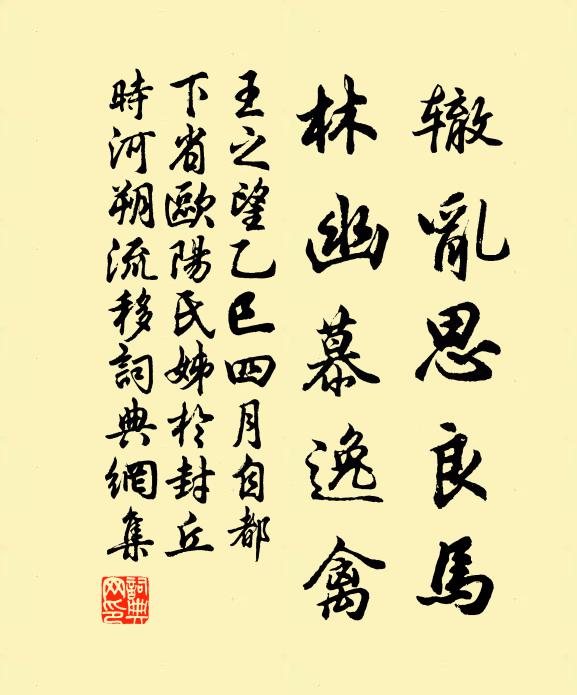 辙亂思良馬
林幽慕逸禽
王之望乙巳四月自都
下省歐陽氏姊於封丘
時河朔流移詞典網集